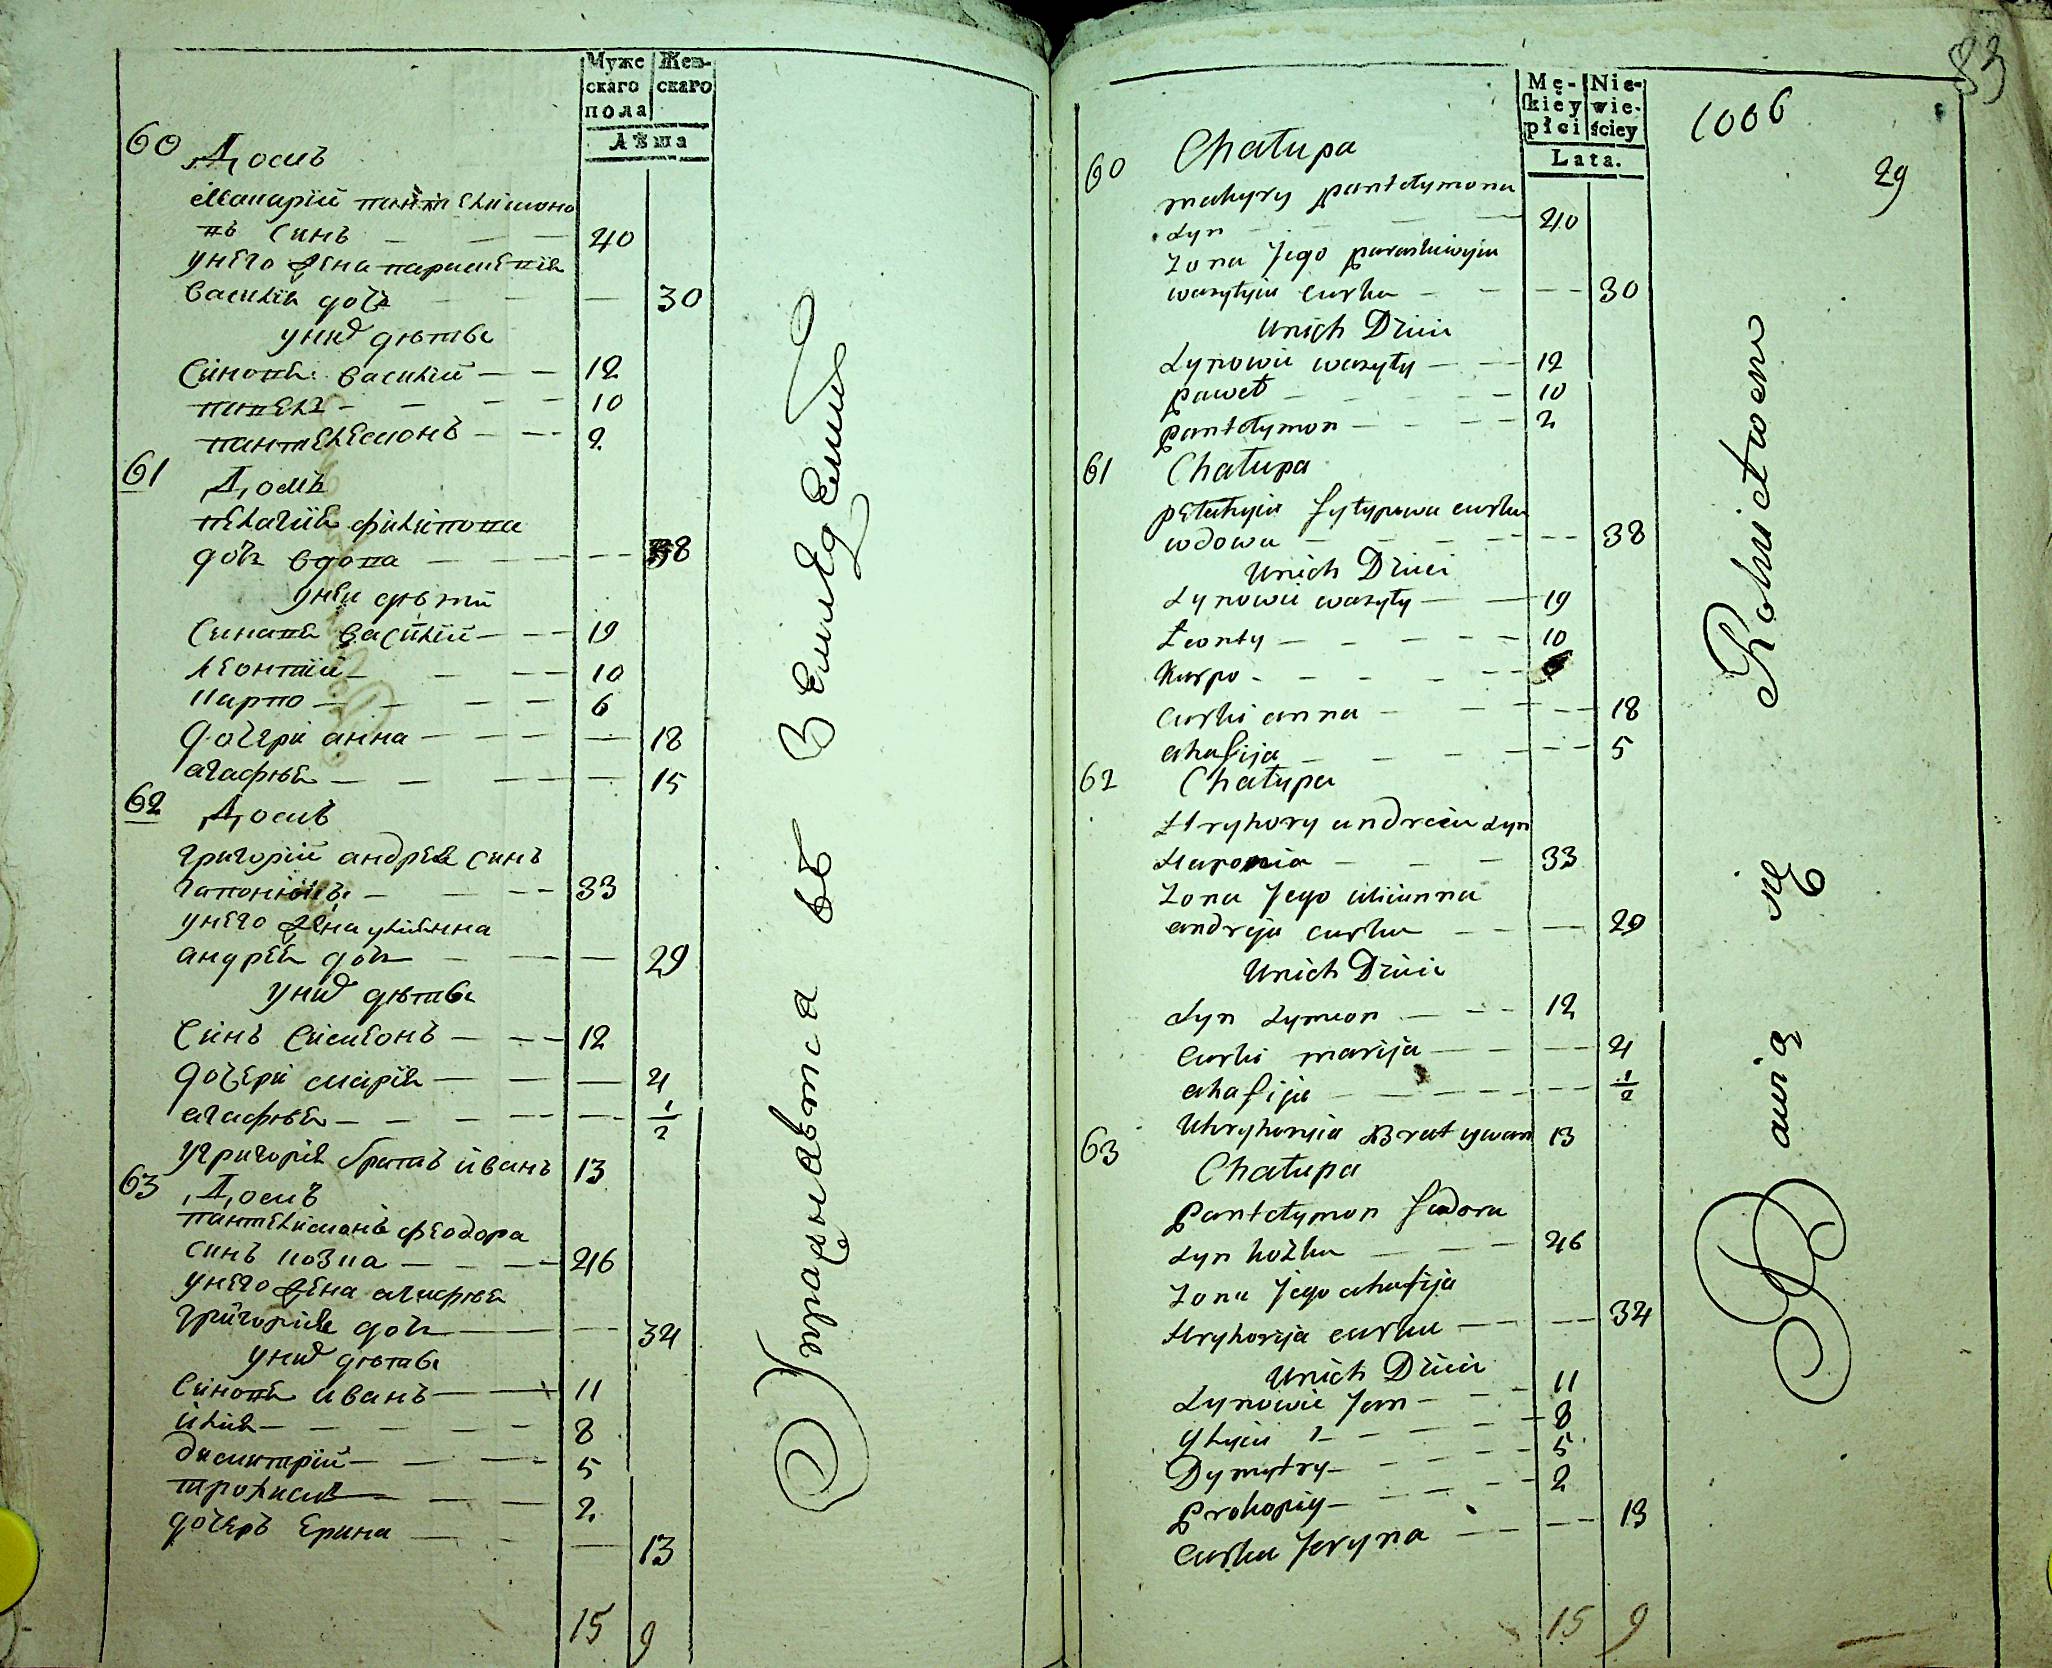 Муже
скаго
пола
Жен-
скаго
Лѣта
60 Домъ
Макарій пантелимоно
въ синъ — — — 40
унего жена параскевія
василія дочь — — — 30
уних дѣтвы
Синове василій — — 12
павелъ — — — 10
пантелемонъ — — 2
61 Домъ
пелагія филипова
дочь вдова — — — 38
унеи дѣти
Синове василій — — 19
леонтій — — — 10
карпо — — — 6
дочери анна — — — 18
агафія — — — 15
62 Домъ
григорій андрея синъ
гапонюкъ — — — 33
унего жена улянна
андрея дочь — — — 29
уних дѣтвы
Синъ Симеонъ — — — 12
дочери марія — — — 4
агафія — — — 1/2
угригорія братъ иванъ 13
63 Домъ
пантелимонъ феодора
синъ козка — — — 46
унего жена агафія
григорія дочь — — — 34
уних дѣтвы
Синове иванъ — — 11
илия — — — 8
димитрій — — — 5
прокипій — — — 2
дочеръ Ерина — — — 13
15 9
Упражнавтса въ Земледеліи
83
Mę-
skiey
płci
Nie-
wie-
ściey
Lata.
1006
29
60 Chałupa
makyry pantełymona
syn — — — 40
żona Jego paraskiwyja
wasylyia curka — — — 30
Unich Dzieci
synowie wasyły — — 12
paweł — — — 10
pantełymon — — — 2
61 Chałupa
pełahyia fyłypowa curka
wdowa — — — 38
Unich Dzieci
synowie wasyły — — 19
Łeonty — — — 10
Karpo — — —
curki anna — — — 18
ahafija — — — 5
62 Chałupa
Hryhory andreia syn
Haponia — — — 33
żona Jego uliianna
andryja curka — — — 29
Unich Dzieci
syn symeon — — — 12
curki marija — — — 4
ahafija — — — 1/2
Uhryhoryia Brat ywan 13
63 Chałupa
pantełymon fedora
syn kożka — — — 46
żona Jego ahafija
Hryhorija curka — — — 34
Unich Dzieci
synowie Jwan — — 11
ylyia — — — 8
Dymytry — — — 5
prokopiy — — — 2
curka Jeryna — — — 13
15 9
Bawią się Rolnictwem